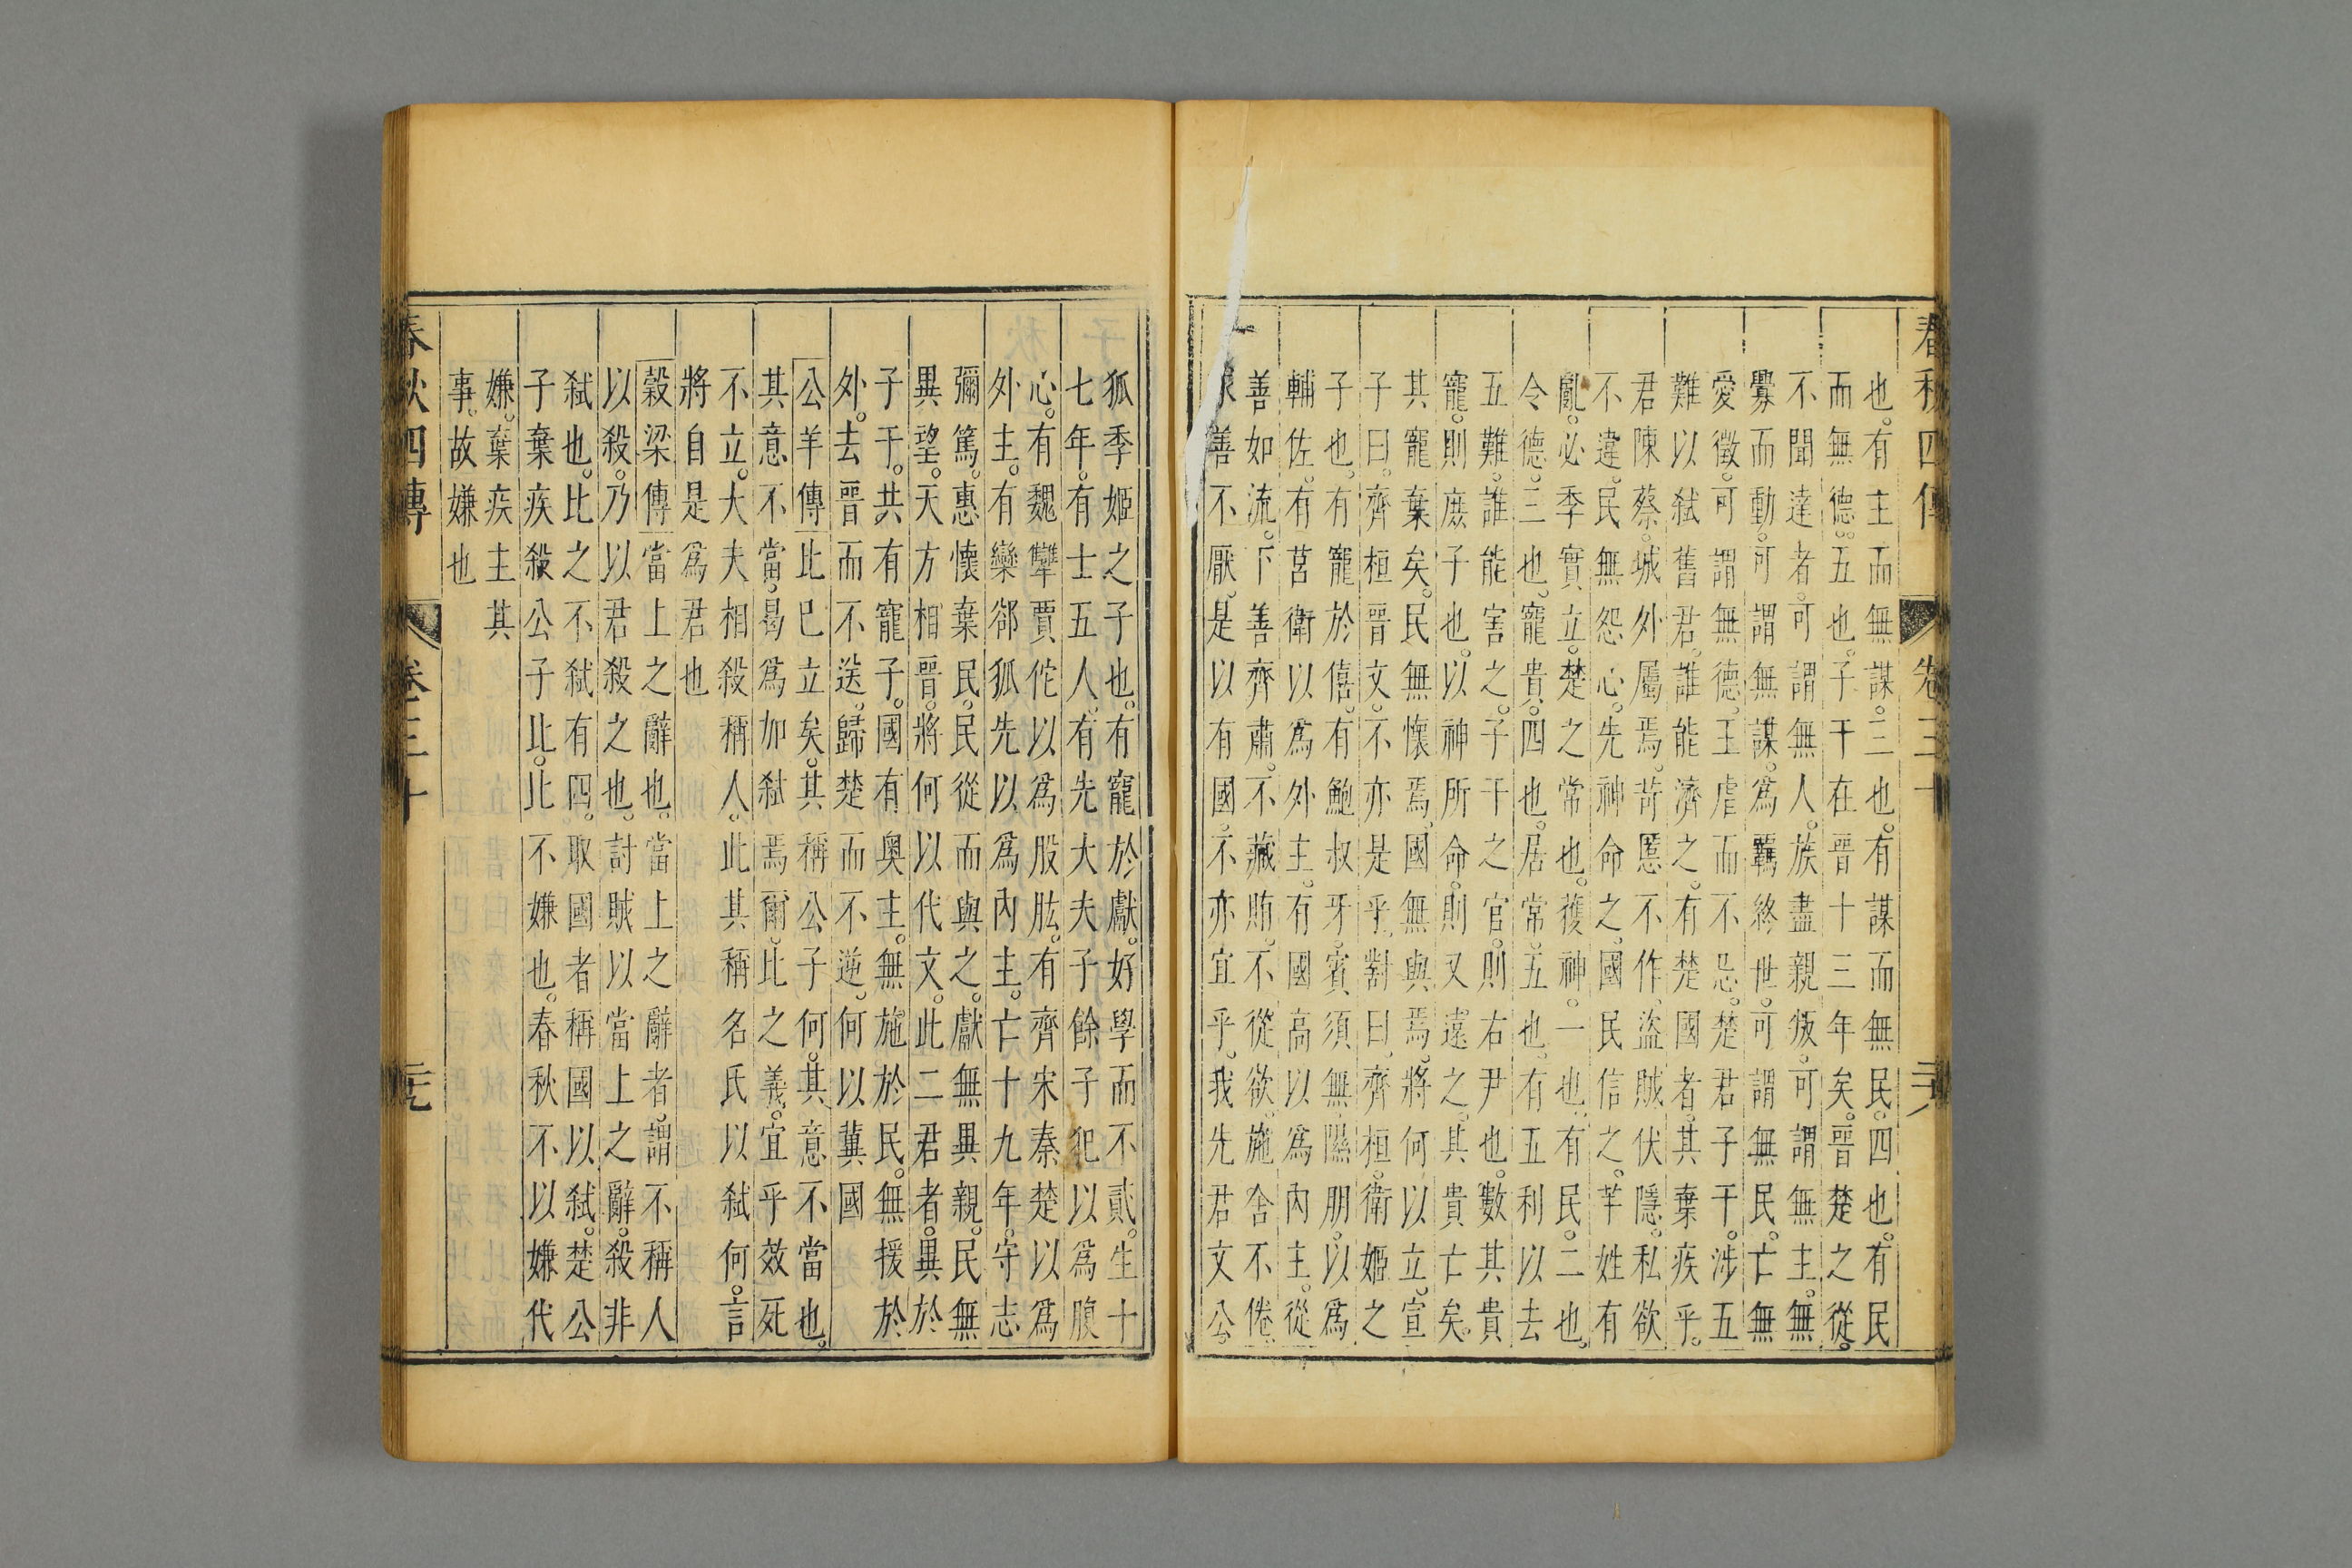 春秋四傳 卷三十
也。有主而無謀。三也。有謀而無民。四也。有民
而無德。五也。子干在晉十三年矣。晉楚之從。
不聞達者。可謂無人。族盡親叛。可謂無主。無
釁而動。可謂無謀。為羈終世。可謂無民。亡無
愛徵。可謂無德。王虐而不忌。楚君子干。涉五
難以弒舊君。誰能濟之。有楚國者。其棄疾乎。
君陳蔡。城外屬焉。苛慝不作。盜賊伏隱。私欲
不違。民無怨心。先神命之。國民信之。芊姓有
亂。必季實立。楚之常也。獲神。一也。有民。二也。
令德。三也。寵貴。四也。居常。五也。有五利以去
五難。誰能害之。子干之官。則右尹也。數其貴
寵。則庶子也。以神所命。則又遠之。其貴亡矣。
其寵棄矣。民無懷焉。國無與焉。將何以立。宣
子曰。齊桓晉文。不亦是乎。對曰。齊桓。衛姬之
子也。有寵於僖。有鮑叔牙。賓須無。隰朋。以為
輔佐。有莒衛以為外主。有國高以為內主。從
善如流。下善齊肅。不藏賄。不從欲。施舍不倦。
善不厭。是以有國。不亦宜乎。我先君文公。
狐季姬之子也。有寵於獻。好學而不貳。生十
七年。有士五人。有先大夫子餘子犯以為腹
心。有魏犨賈佗以為股肱。有齊宋秦楚以為
外主。有欒郤狐先以為內主。亡十九年。守志
彌篤。惠懷棄民。民從而與之。獻無異親。民無
異望。天方相晉。將何以代文。此二君者。異於
子干。共有寵子。國有奧主。無施於民。無援於
外。去晉而不送。歸楚而不逆。何以冀國
公羊傳 比已立矣。其稱公子何。其意不當也。
其意不當。曷為加弒焉爾。比之義。宜乎效死
不立。大夫相殺稱人。此其稱名氏以弒何。言
將自是為君也
穀梁傳 當上之辭也。當上之辭者。謂不稱人
以殺。乃以君殺之也。討賊以當上之辭。殺非
弒也。比之不弒有四。取國者稱國以弒。楚公
子棄疾殺公子比。比不嫌也。春秋不以嫌代
嫌。棄疾主其
事。故嫌也
春秋四傳 卷三十